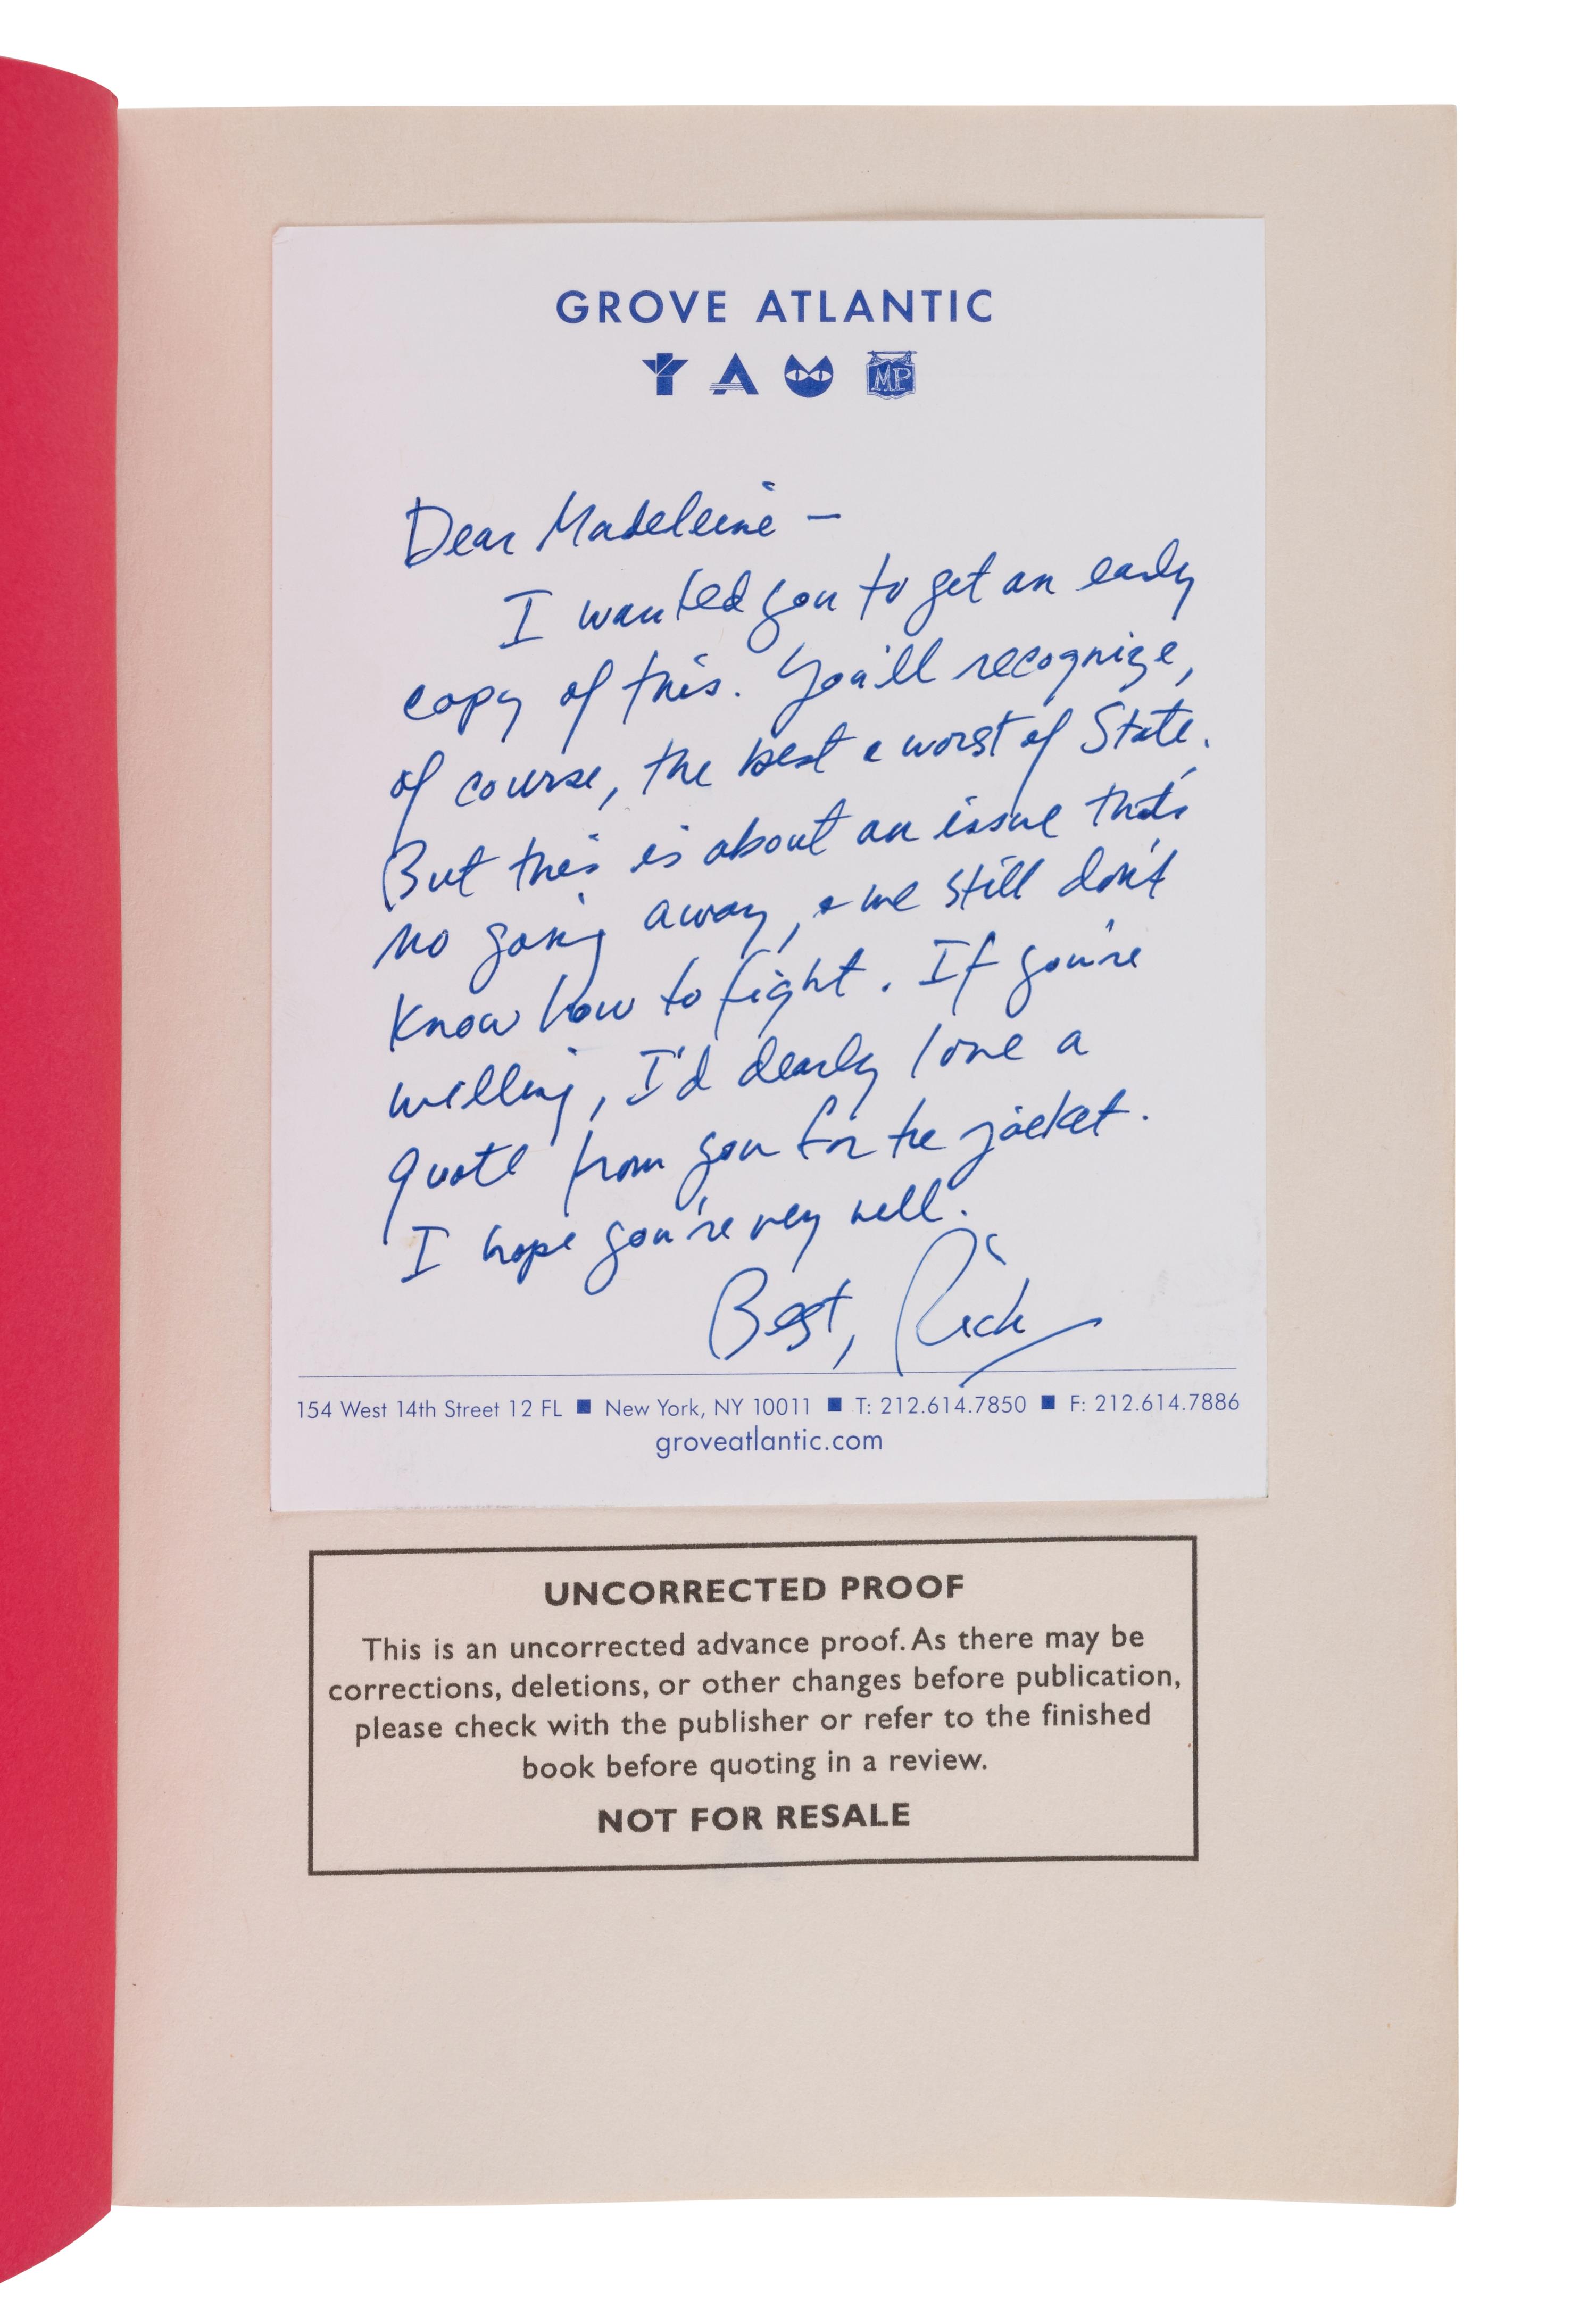 GROVE ATLANTIC
MP
Dear Madeleine –
I wanted you to get an early
copy of this. You'll recognize,
of course, the best & worst of State.
But this is about an issue that's
no going away, & we still don't
know how to fight. If you're
willing, I'd dearly love a
quote from you for the jacket.
I hope you're very well.
Best, Rick
154 West 14th Street 12 FL ■ New York, NY 10011 ■ T: 212.614.7850 ■ F: 212.614.7886
groveatlantic.com
UNCORRECTED PROOF
This is an uncorrected advance proof. As there may be
corrections, deletions, or other changes before publication,
please check with the publisher or refer to the finished
book before quoting in a review.
NOT FOR RESALE